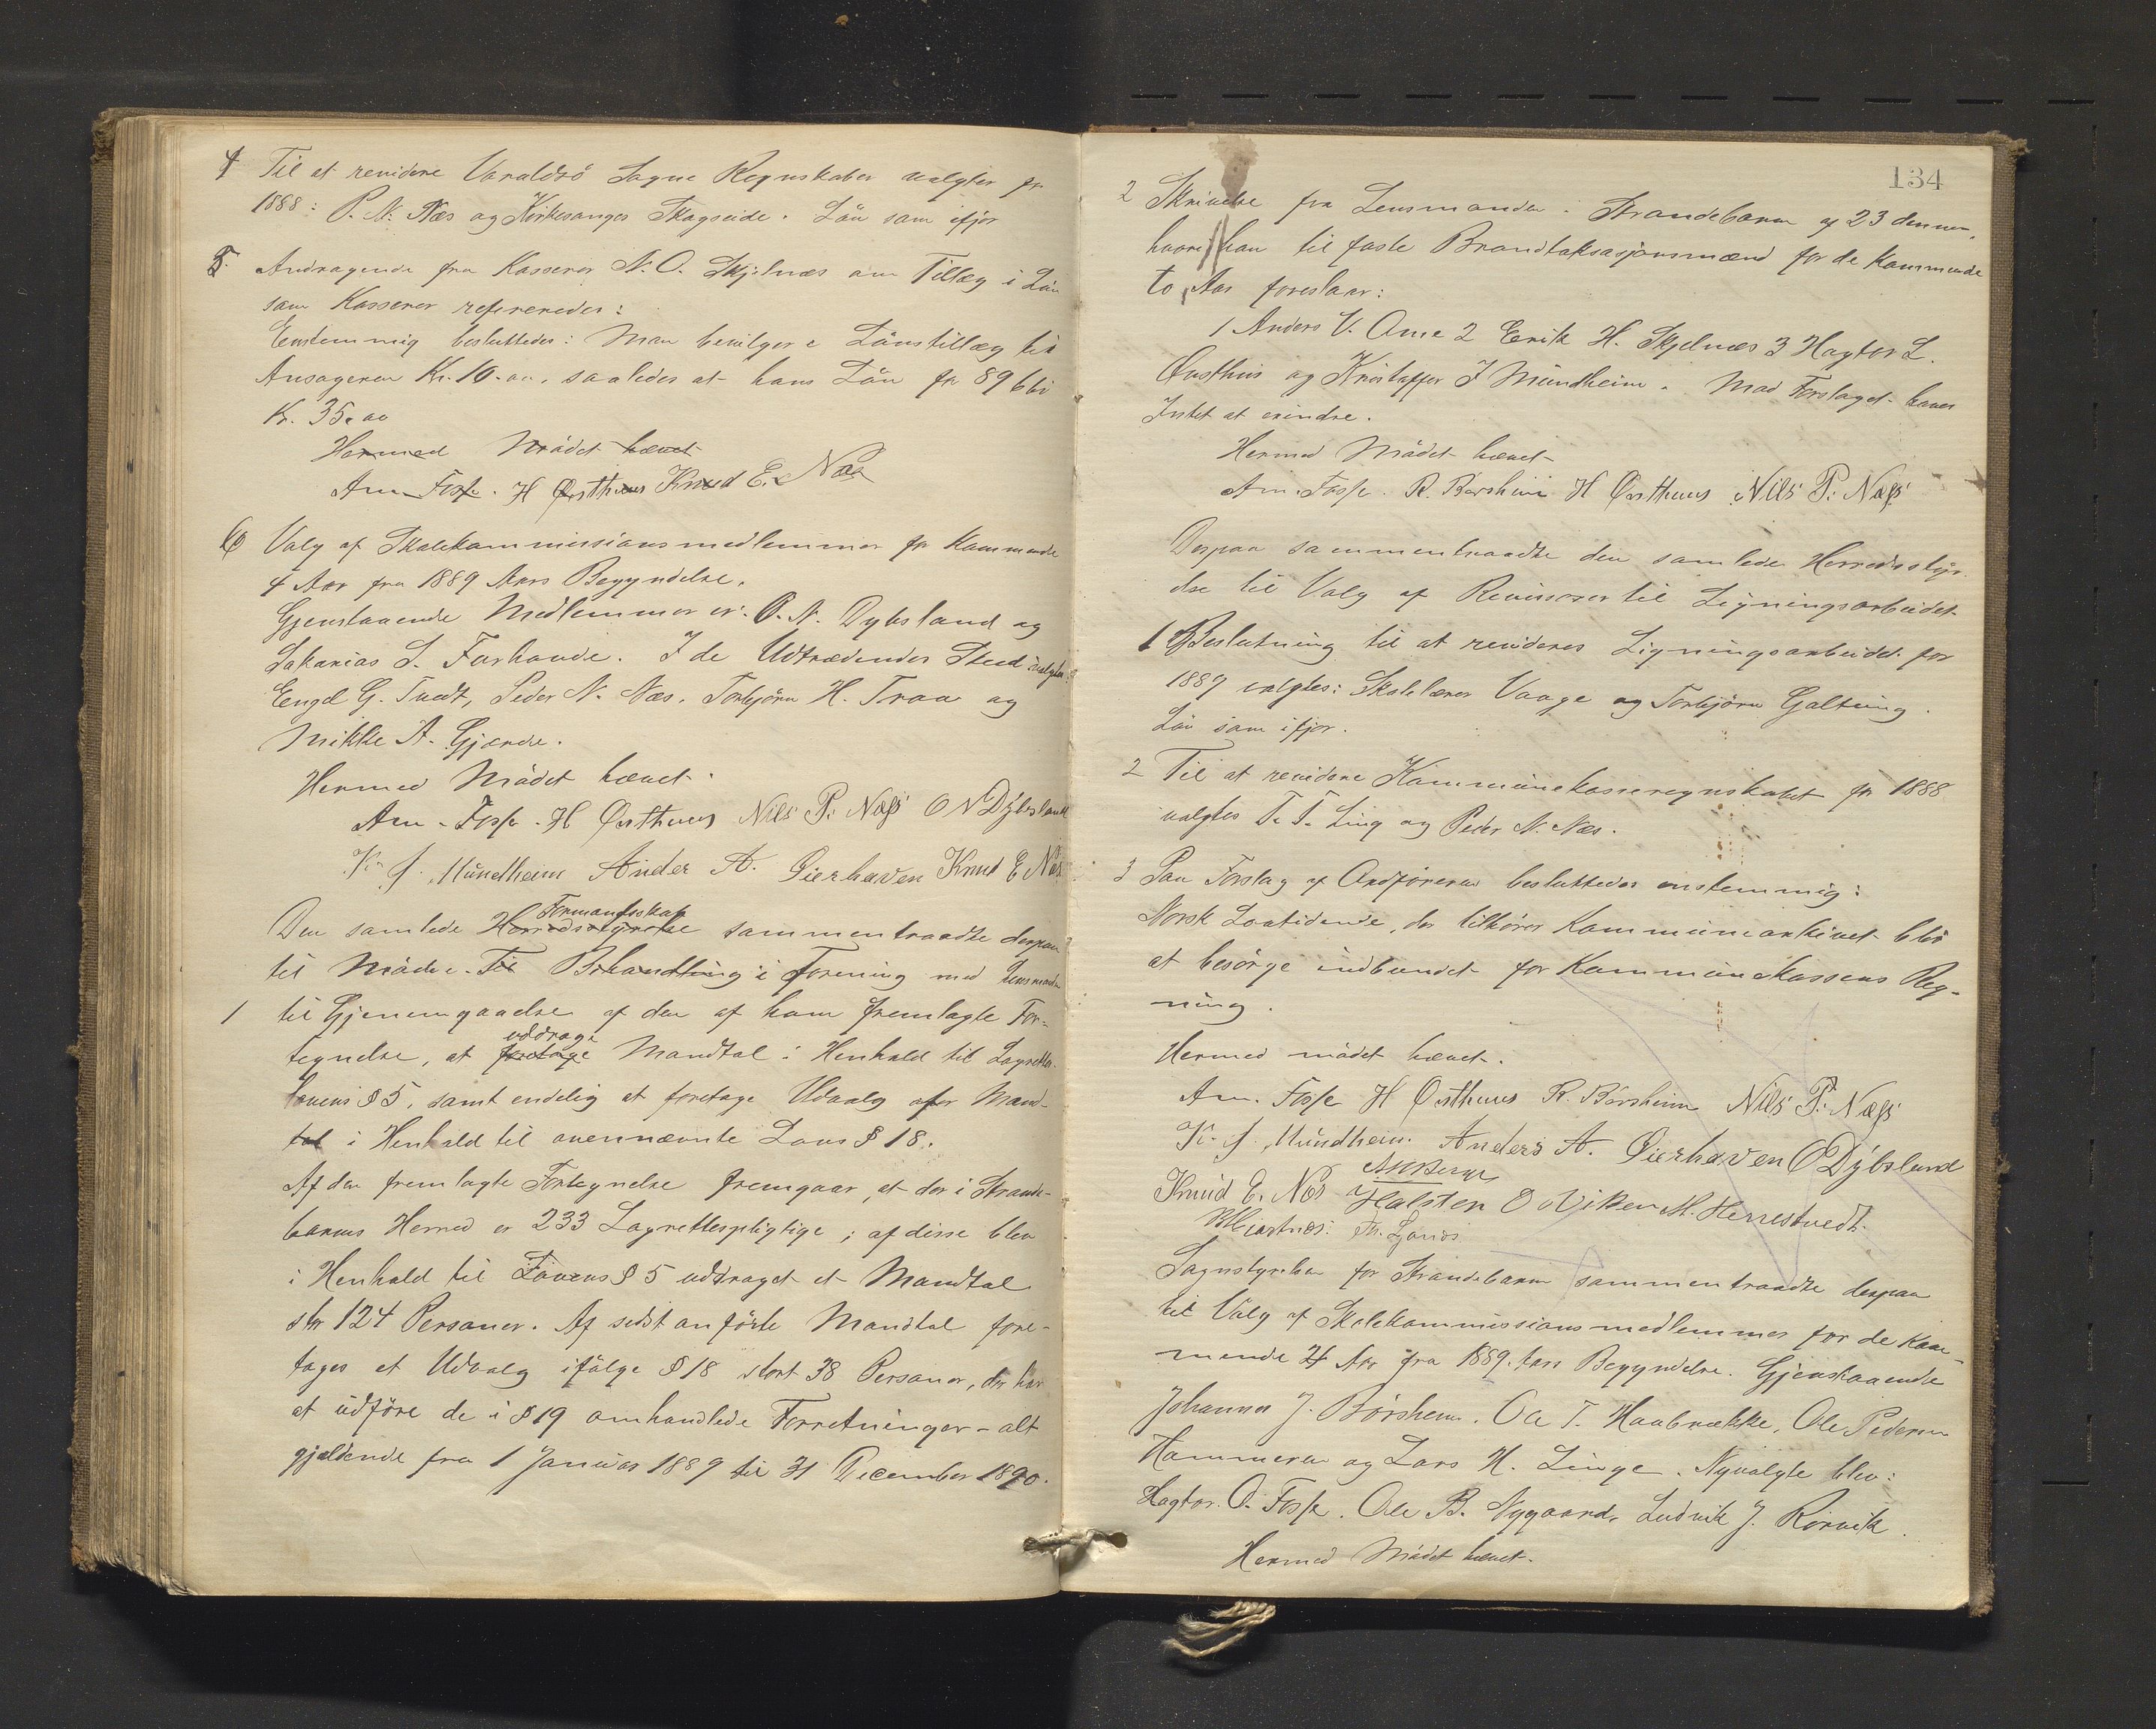 4 Til at revidere Varaldsö Sogns Regnskaber valgtes for
1888: P. N. Næs og Kirkesanger Skagseide. Lön som ifjor
5. Andragende fra Kasserer N. O. Skjelnæs om Tillæg i Lön
som Kasserer refereredes:
Enstemmig besluttedes: Man bevilger e Lönstillæg til
Ansögeren Kr. 10.00, saaledes at hans Lön for 89 bli
Kr. 35.00
Hermed Mödet hævet
Am. Fosse. H Østhuus Knud E. Næs
6 Valg af Skolekommissionsmedlemmer for kommende
4 Aar fra 1889 Aars Begyndelse.
Gjenstaaende Medlemmer er: O. N. Dybsland og
Sakarias S. Farhovde. I de Udtrædendes Sted valgtes:
Engel G. Tvedt, Peder N. Næs, Torbjörn H. Traa og
Mikke A. Gjerde.
Hermed Mödet hævet.
Am. Fosse. H Østhuus Nils P. Næss O N Dybsland
K. J. Mundheim Ander A. Øierhaven Knud E Næs
Formandsskab
Den samlede Herredsstyrelse sammentraadte derpaa
til Möde. Til Behandling i Forening med Lensmanden
1 til Gjenemgaaelse af den af ham fremlagte For-
uddrage
tegnelse, at foretage Mandtal i Henhold til Lagrette-
lovens § 5, samt endelig at foretage Udvalg af Mand-
tal i Henhold til ovennævnte Lovs § 18.
Af den fremlagte Fortegnelse fremgaar, at der i Strande-
barms Herred er 233 Lagrettespligtige; af disse blev
i Henhold til Lovens § 5 uddraget et Mandtal
stor 124 Personer. Af sidst anförte Mandtal fore-
tages et Udvalg ifölge § 18 stort 38 Personer, der har
at udföre de i § 19 omhandlede Forretninger - alt
gjældende fra 1 Januar 1889 til 31 December 1890.
134
2 Skrivelse fra Lensmanden i Strandebarm af 23 dennes,
hvori han til faste Brandtaksasjonsmænd for de kommende
to Aar foreslaar:
1 Anders V. Ome 2 Erik H. Skjelnæs 3 Hagtor L.
Østhus og Kristoffer J Mundheim. Mod Forslaget haves
Intet at erindre.
Hermed Mödet hævet
Am. Fosse. R. Børsheim H Østhuus Nils P. Næss
Derpaa sammentraadte den samlede Herredsstyr-
else til Valg af Revisorer til Ligningsarbeidet
1 Beslutning til at revideres Ligningsarbeidet for
1889 valgtes: Skolelærer Vaage og Torbjörn Galtung.
Lön som ifjor.
2 Til at revidere Kommunekasseregnskabet for 1888
valgtes T. T. Ling og Peder N. Næs.
3 Paa Forslag af Ordföreren besluttedes enstemmig:
Norsk Lovtidende, der tilhörer Kommunearkivet blir
at besörge indbundet for Kommunekassens Reg-
ning.
Hermed mödet hævet.
Am. Fosse H Østhuus R. Børsheim Nils P. Næss
K. J. Mundheim. Anders A. Øierhaven O Dybsland
Knud E. Næs Halsten O Viken M. Herrestvedt.
Sognestyrelsen for Strandebarm sammentraadte derpaa
til Valg af Skolekommissionsmedlemmer for de kom-
mende 4 Aar fra 1889. Aars Begyndelse. Gjenstaaende
Johannes J. Börsheim. Ole T. Haabrække, Ole Pedersen
Hammeren og Lars H. Linge. Nyvalgte blev:
Hagtor O. Fosse. Ole B. Nygaard, Ludvik J. Rörvik.
Hermed Mödet hævet.